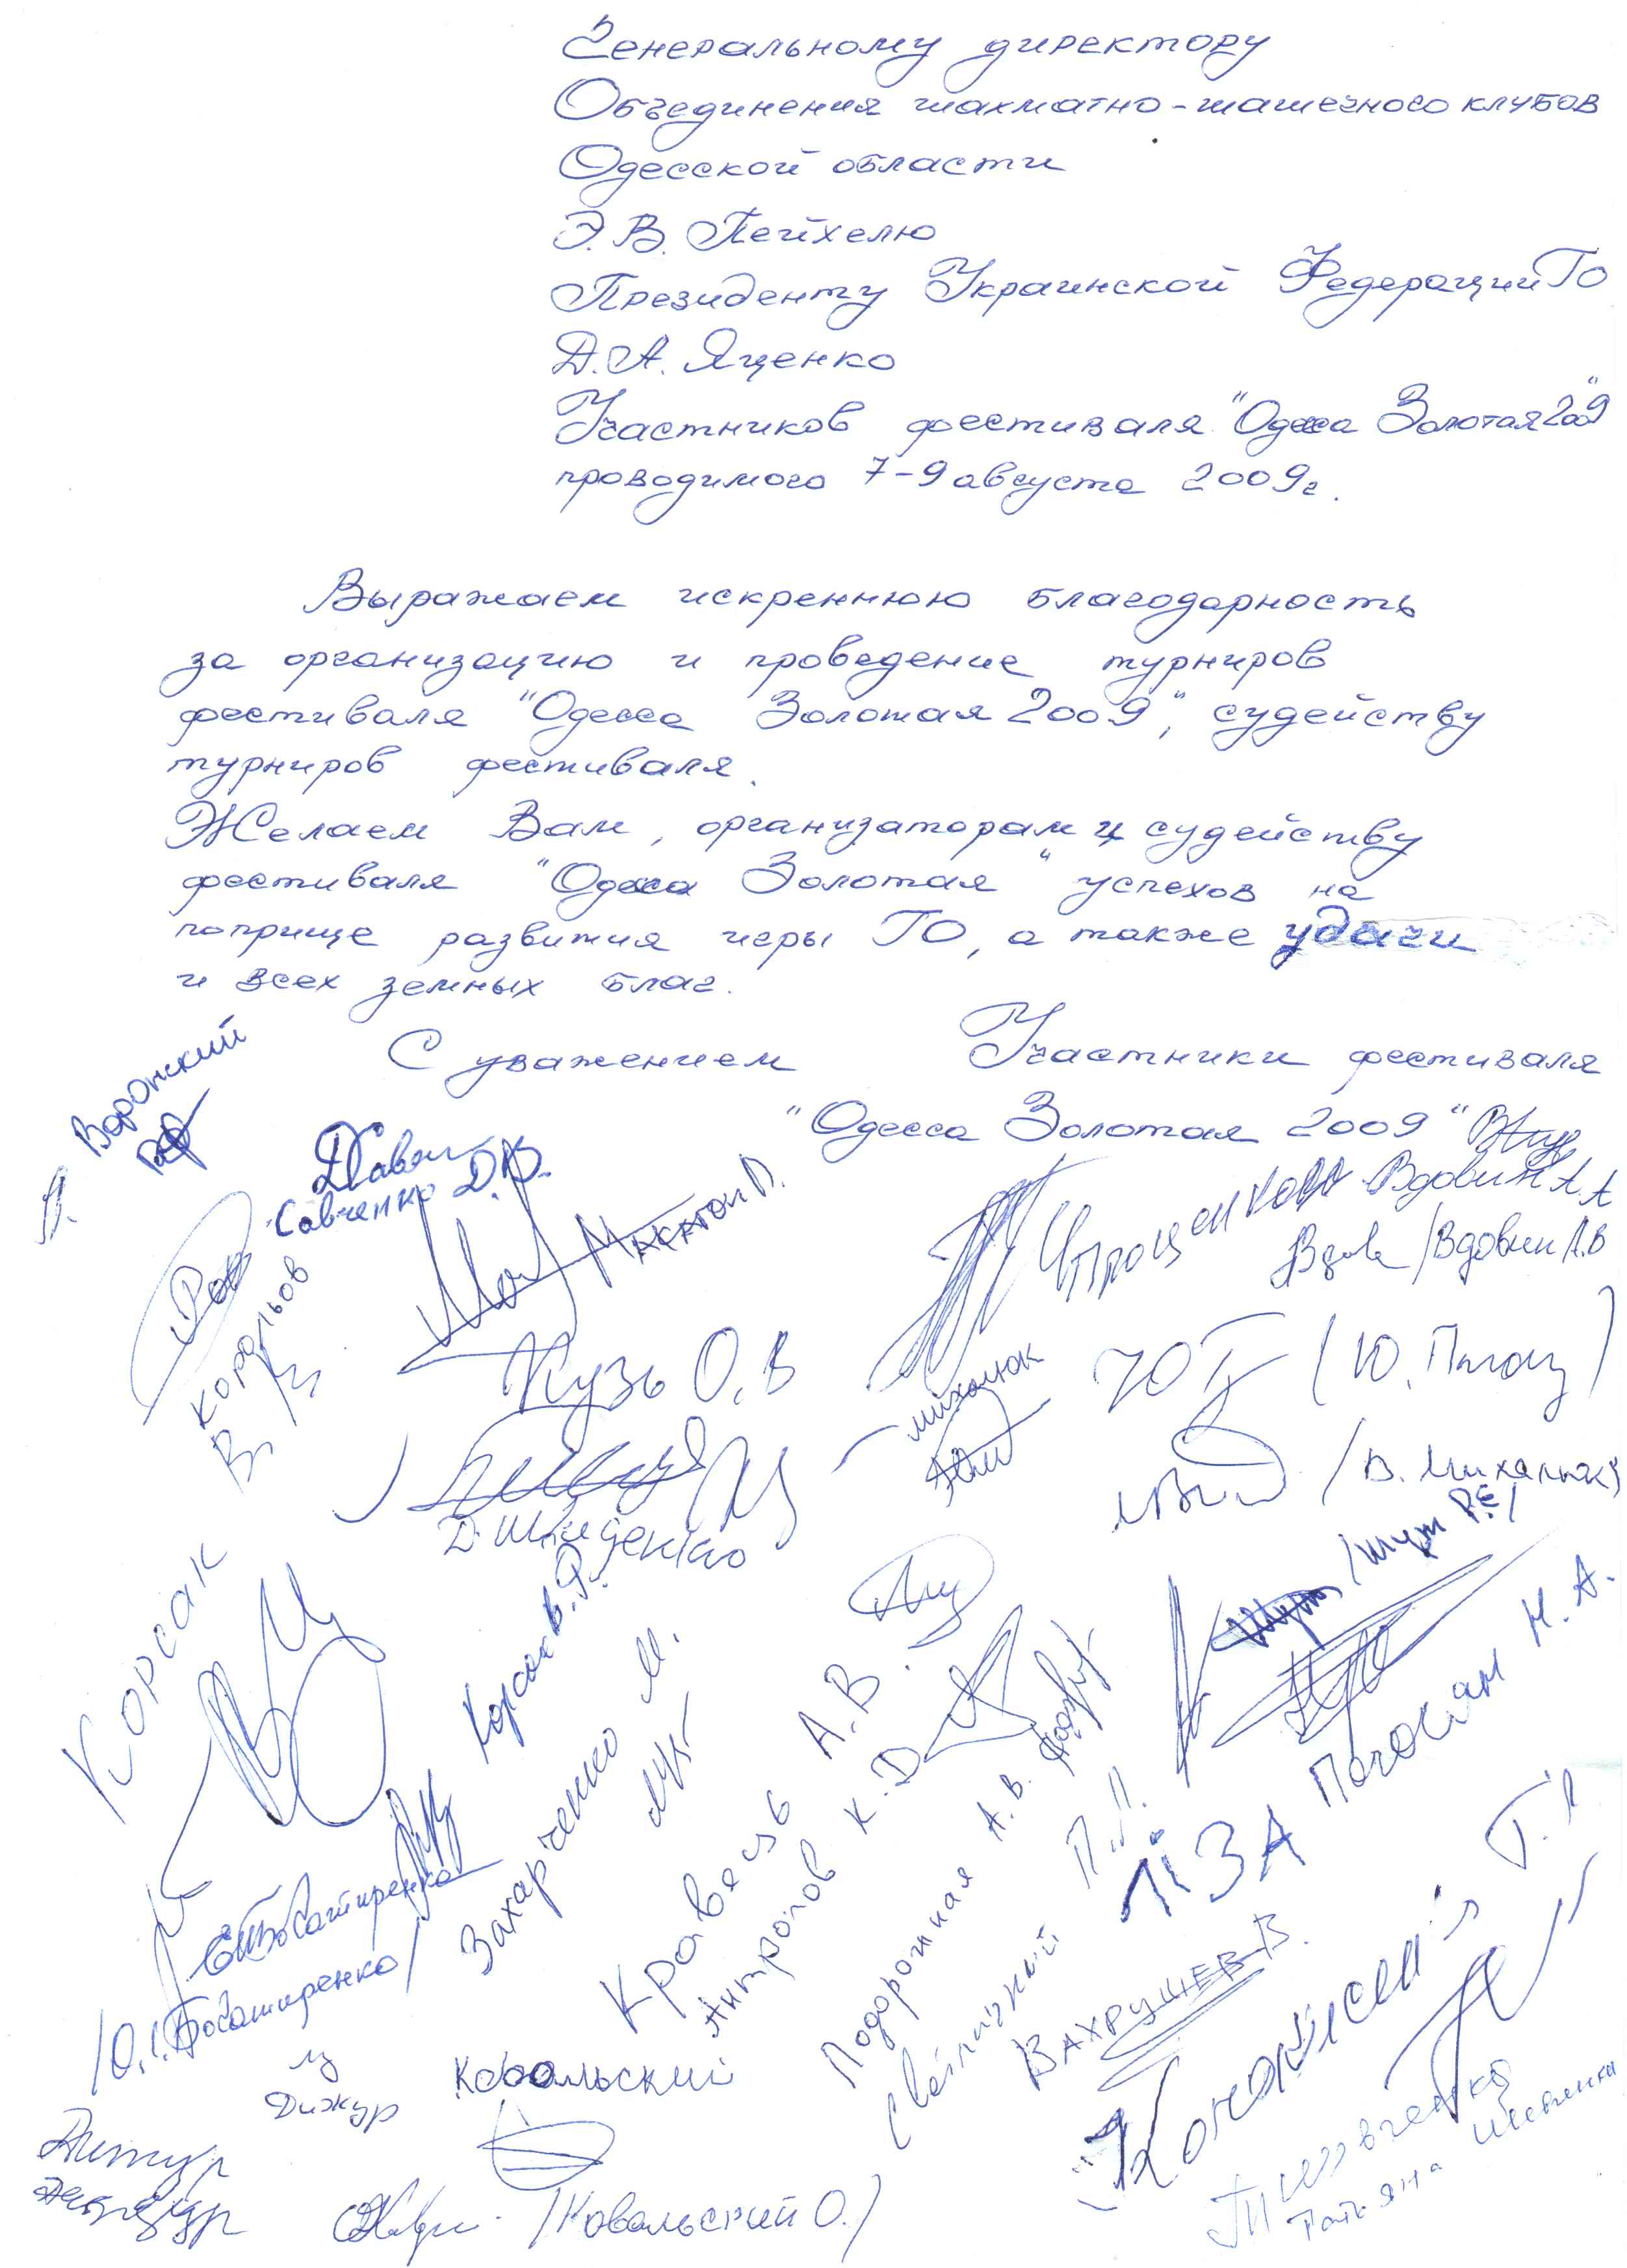 Генеральному директору
Объединения шахматно-шашечного клубов
Одесской области
Э.В. Пейхелю
Президенту Украинской Федерации ГО
Д.А. Яценко
Участников фестиваля "Одесса Золотая 2009"
проводимого 7-9 августа 2009г.
Выражаем искреннюю благодарность
за организацию и проведение турниров
фестиваля "Одесса Золотая 2009", судейству
турниров фестиваля.
Желаем Вам, организаторам и судейству
фестиваля "Одесса Золотая" успехов на
поприще развития игры ГО, а также удачи
и всех земных благ.
С уважением Участники фестиваля
"Одесса Золотая 2009"
Воронский
Савченко Д.В.
Вдовин А.А
/Вдовин А.В
Корольов
Макагон
Кузь О.В
михалюк
/В. Михалюк/
Корсак
Корсак В.
/Шут Р.Е/
Погосян М.А.
Захарченко М.
Кравець А.В.
Антропов К.D
Подорожная А.В.
ЛіЗА
Вахрушев В.
Богатиренко
/О.І. Богатиренко/
Дижур
Ковальский
/Ковальский О./
Шевченко
Татьяна